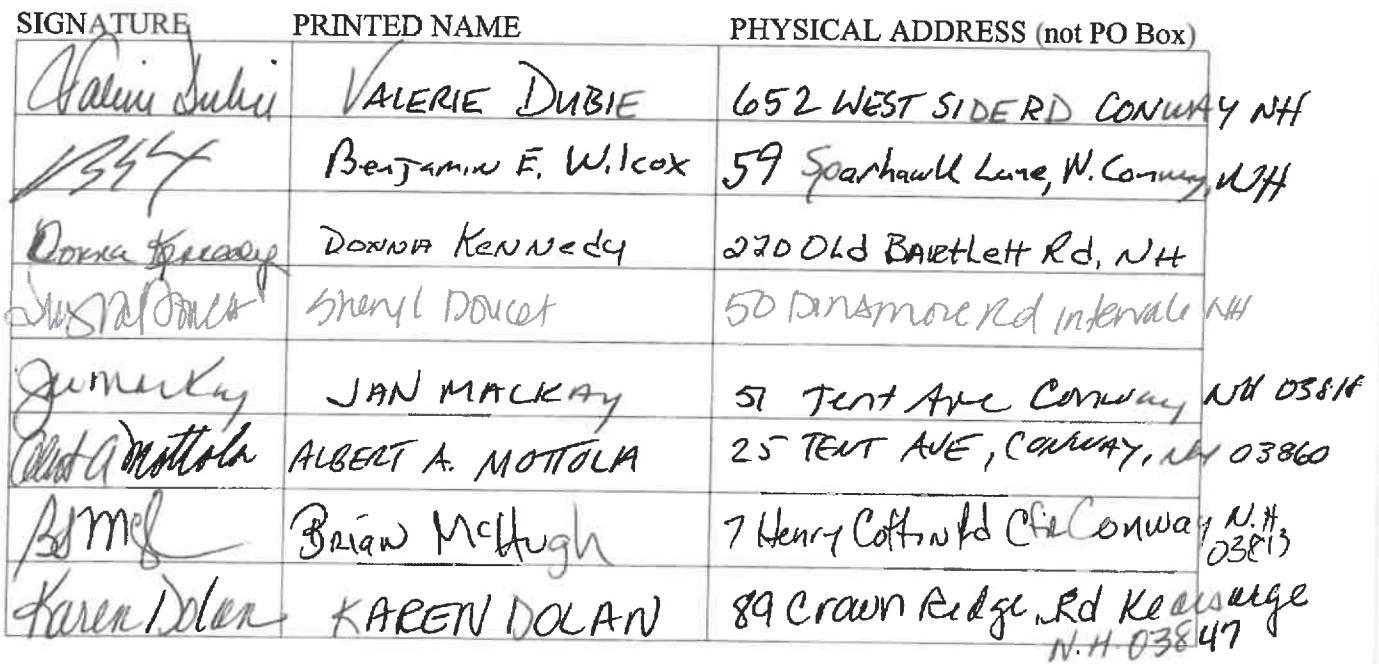 SIGNATURE PRINTED NAME PHYSICAL ADDRESS (not PO Box)
Valerie Dubie VALERIE DUBIE 652 WEST SIDE RD CONWAY NH
Benjamin E. Wilcox 59 Sparhawk Lane, N. Conway, NH
Donna Kennedy DONNA KENNEdy 220 OLd BARtlett Rd, NH
Sheryl Doucet Sheryl Doucet 50 Dinsmore Rd Intervale NH
Jan MacKay JAN MACKAy 51 Tent Ave Conway NH 03818
Albert A Mottola ALBERT A. MOTTOLA 25 TENT AVE, CONWAY, NH 03860
Brian McHugh 7 Henry Cotton Rd Ctr Conway N.H.
03813
Karen Dolan KAREN DOLAN 89 Crown Ridge Rd Kearsarge
N.H. 03847